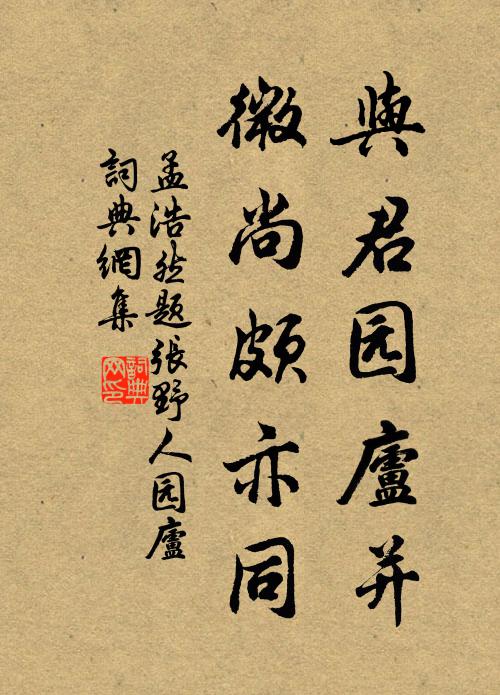 與君园廬并
微尚頗亦同
孟浩然題張野人园廬
詞典網集
詞典網印